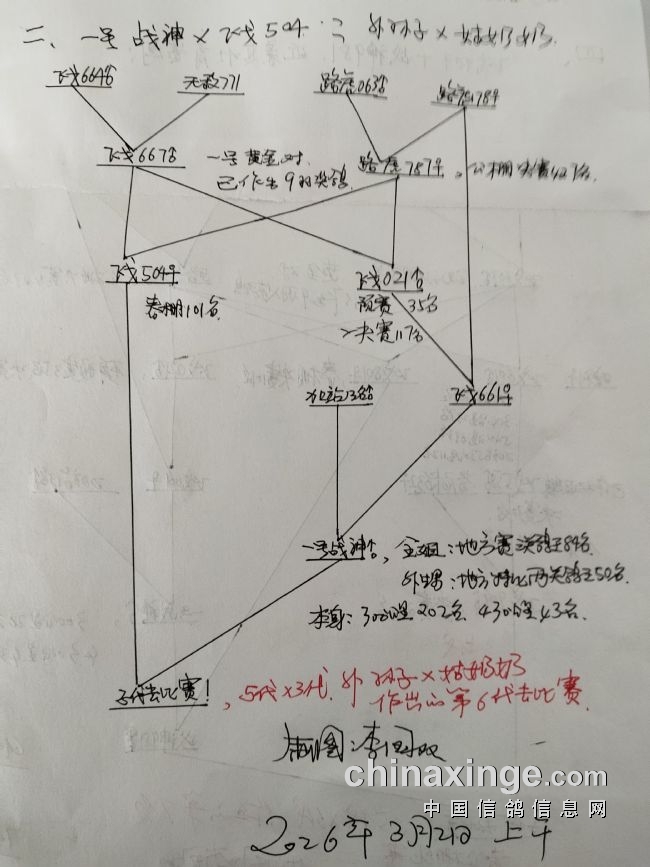 二、一号战神×飞戈504♀ = 外孙子×姑奶奶.
飞戈664♂ 无敌771 路虎063♂ 路虎178♀
飞戈667♂ 一号黄金对. 路虎787♀, 公棚决赛427名.
已作出9羽奖鸽
飞戈504♀ 飞戈021♂
春棚101名. 预赛35名
决赛117名
13♂ 飞戈661♀
一号战神♂, 全姐:地方赛 奖鸽至84名.
外甥:地方特比 两关鸽王50名.
本身:300公里202名 430公里43名.
子代去比赛!, 5代×3代. 外孙子×姑奶奶
作出的第6代去比赛.
制图:李
chinaxinge.com
中国信鸽信息网
2026年3月2日 上午